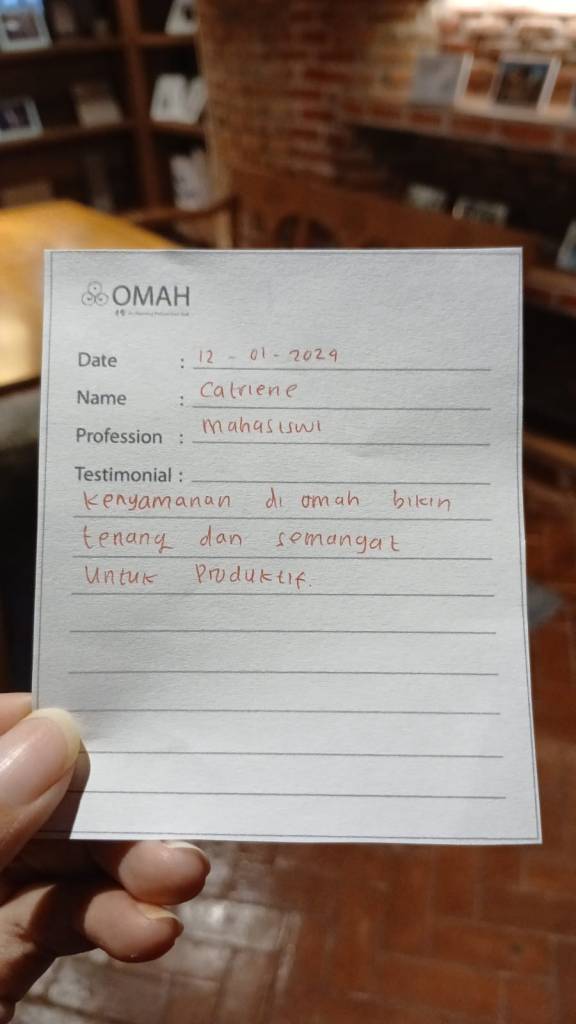 OMAH
Date : 12 - 01 - 2024
Name : Catriene
Profession : Mahasiswi
Testimonial :
Kenyamanan di omah bikin
tenang dan semangat
Untuk Produktif.